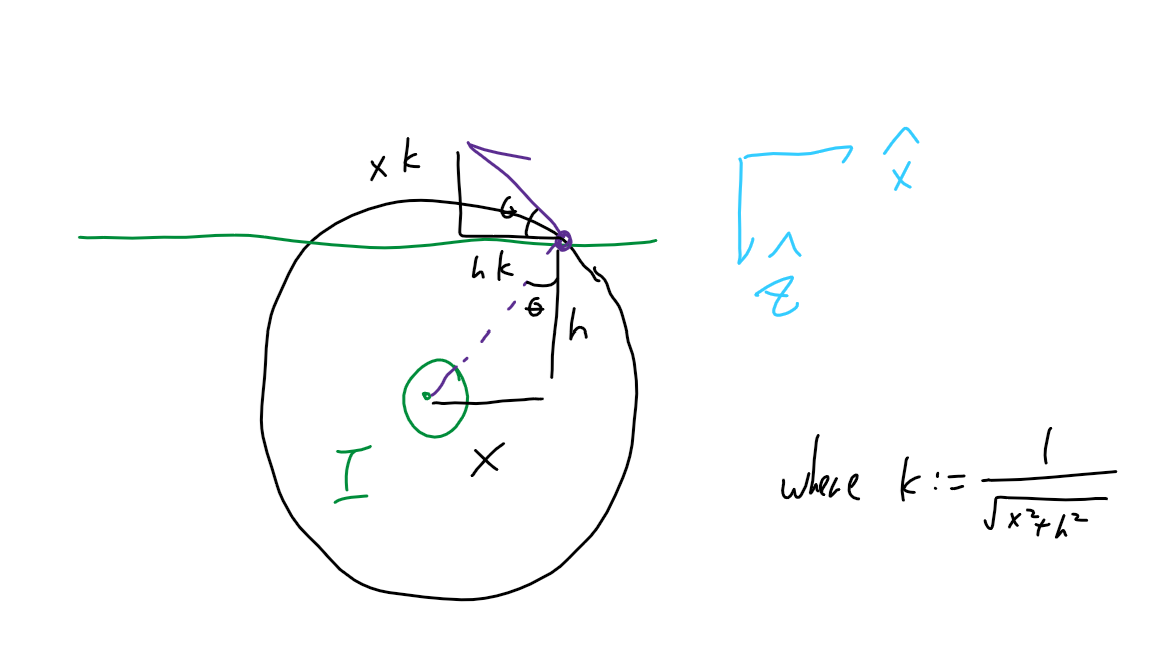 x k
θ
h k
θ
h
x
I
x̂
ẑ
where k := 1/√(x²+h²)